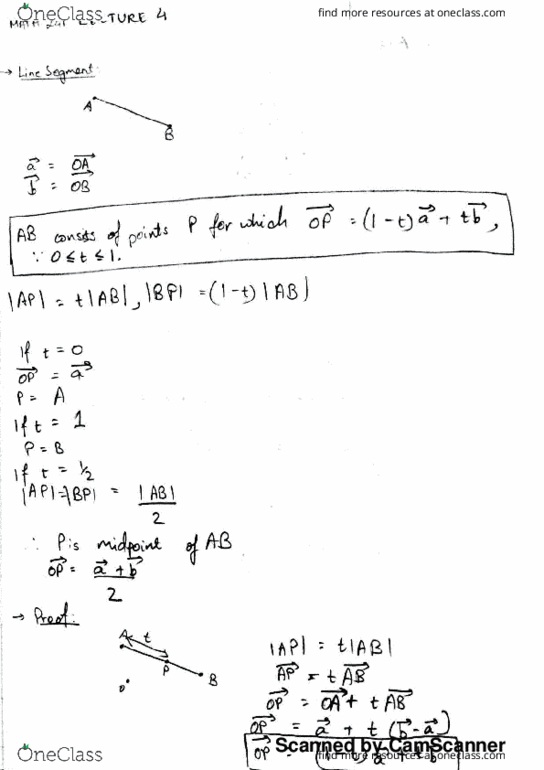 OneClass
find more resources at oneclass.com
LECTURE 4
→ Line Segment:
A
B
a⃗ = OA⃗
b⃗ = OB⃗
AB consists of points P for which OP⃗ = (1-t)a⃗ + tb⃗,
∵ 0 ≤ t ≤ 1.
|AP| = t|AB|, |BP| = (1-t)|AB|
If t = 0
OP⃗ = a⃗
P = A
If t = 1
P = B
If t = ½
|AP|=|BP| = |AB|
2
∴ P is midpoint of AB
OP⃗ = a⃗ + b⃗
2
→ Proof:
A t
P
B
0
|AP| = t|AB|
AP⃗ = tAB⃗
OP⃗ = OA⃗ + tAB⃗
OP⃗ = a⃗ + t(b⃗ - a⃗)
OP⃗ =
Scanned by CamScanner
OneClass
find more resources at oneclass.com